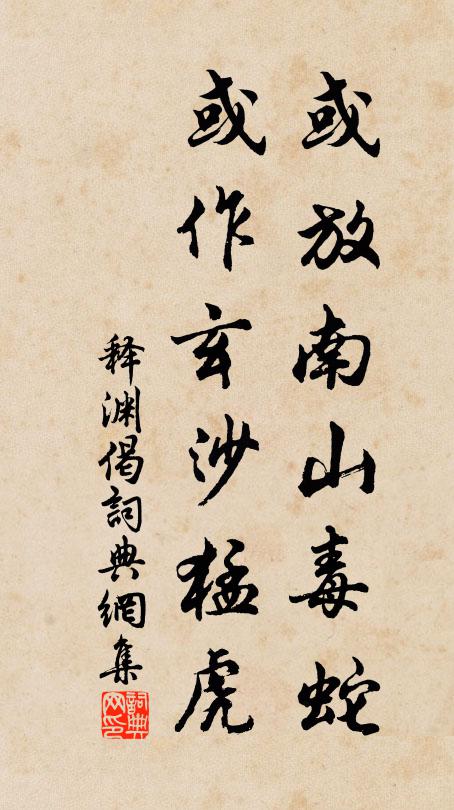 或放南山毒蛇
或作玄沙猛虎
释渊偈詞典網集
詞典网印